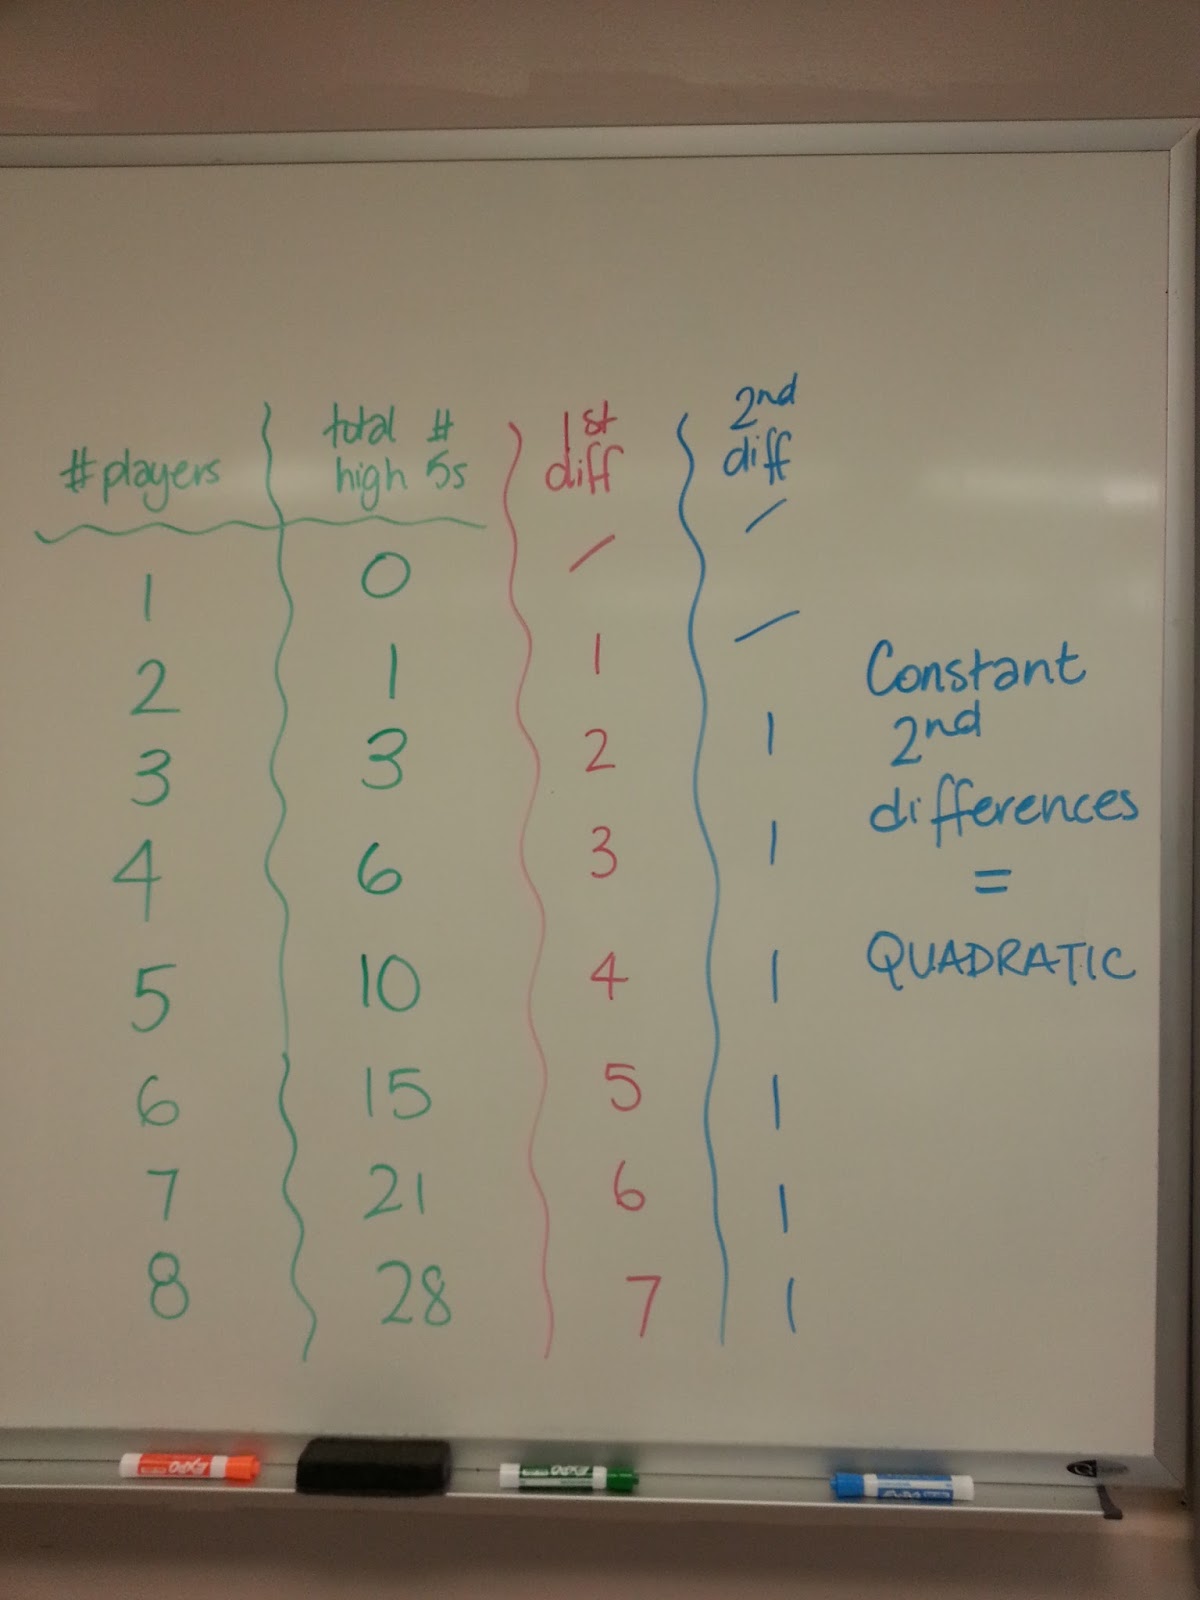 # players total # high 5s 1st diff 2nd diff
1 0 / /
2 1 1 /
3 3 2 1
4 6 3 1
5 10 4 1
6 15 5 1
7 21 6 1
8 28 7 1
Constant
2nd
differences
=
QUADRATIC
EXPO
EXPO
EXPO